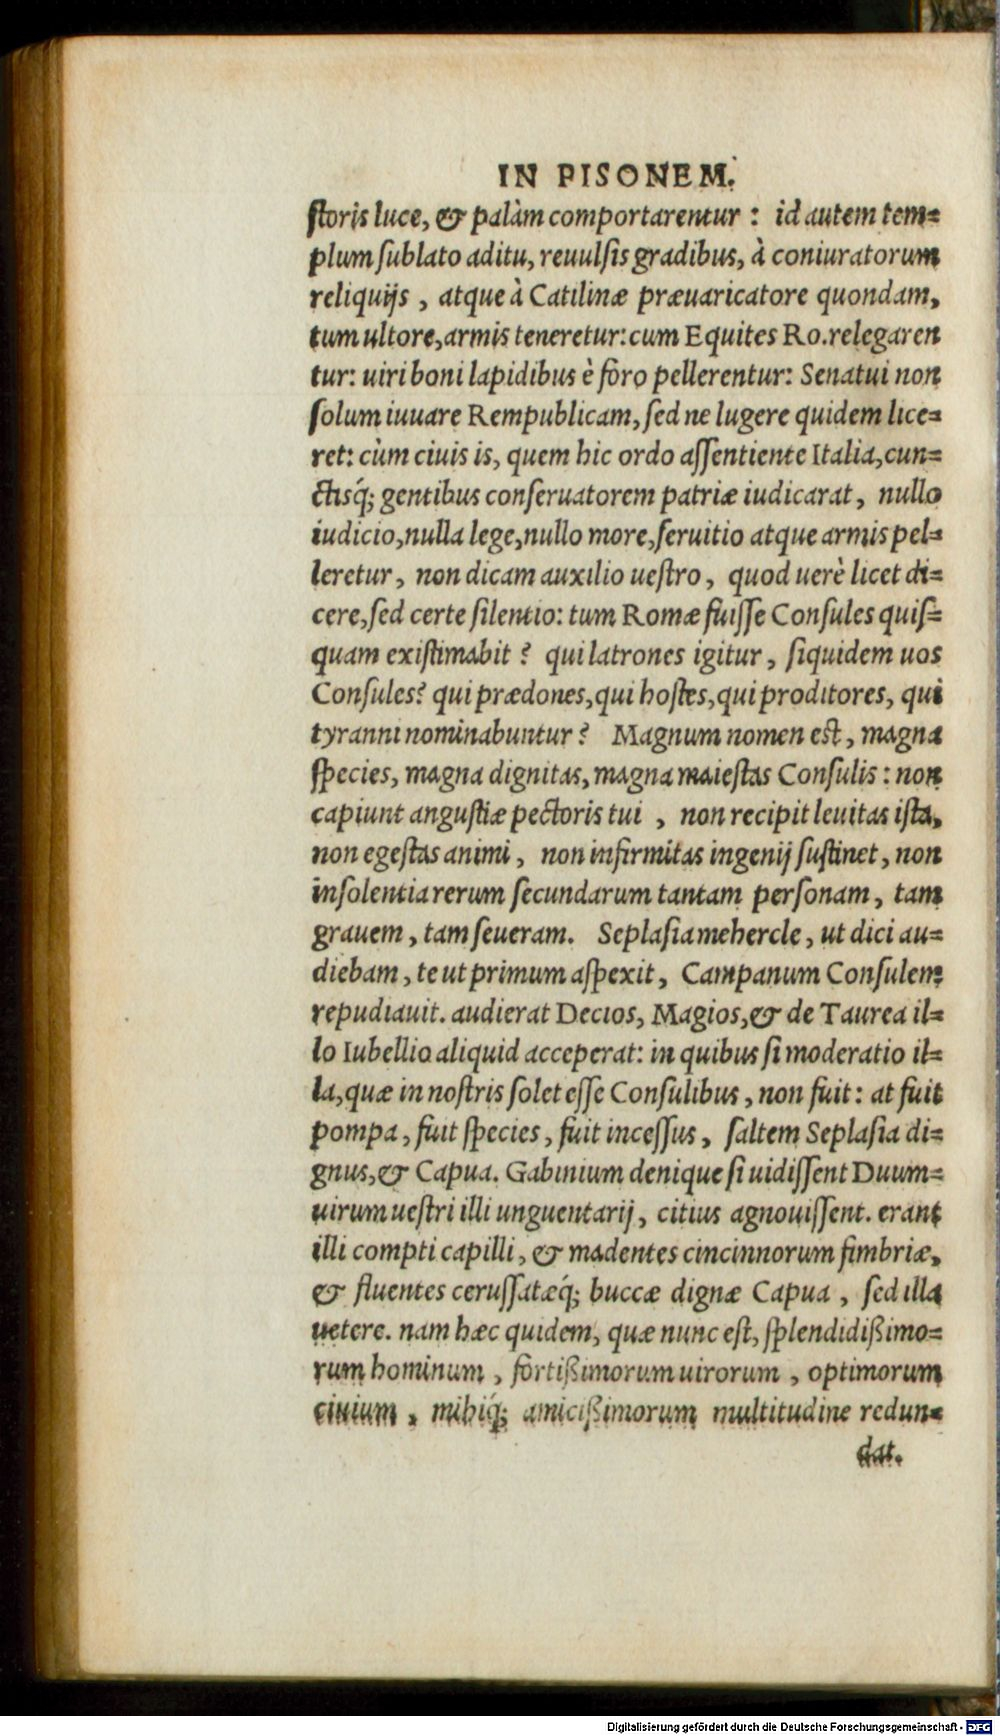 IN PISONEM.
ſtoris luce, & palàm comportarentur : id autem tem=
plum ſublato aditu, reuulſis gradibus, à coniuratorum
reliquijs , atque à Catilinæ præuaricatore quondam,
tum ultore, armis teneretur: cum Equites Ro. relegaren
tur: uiri boni lapidibus è foro pellerentur: Senatui non
ſolum iuuare Rempublicam, ſed ne lugere quidem lice=
ret: cùm ciuis is, quem hic ordo aſſentiente Italia, cun=
ctisq́; gentibus conſeruatorem patriæ iudicarat, nullo
iudicio, nulla lege, nullo more, ſeruitio atque armis pel=
leretur, non dicam auxilio ueſtro, quod uerè licet di=
cere, ſed certe ſilentio: tum Romæ fuiſſe Conſules quiſ=
quam exiſtimabit ? qui latrones igitur, ſiquidem uos
Conſules? qui prædones, qui hoſtes, qui proditores, qui
tyranni nominabuntur ? Magnum nomen eſt, magna
ſpecies, magna dignitas, magna maieſtas Conſulis : non
capiunt anguſtiæ pectoris tui , non recipit leuitas iſta,
non egeſtas animi, non infirmitas ingenij ſuſtinet, non
inſolentia rerum ſecundarum tantam perſonam, tam
grauem, tam ſeueram. Seplaſia mehercle, ut dici au=
diebam, te ut primum aſpexit, Campanum Conſulem
repudiauit. audierat Decios, Magios, & de Taurea il=
lo Iubellio aliquid acceperat: in quibus ſi moderatio il=
la, quæ in noſtris ſolet eſſe Conſulibus, non fuit: at fuit
pompa, fuit ſpecies, fuit inceſſus, ſaltem Seplaſia di=
gnus, & Capua. Gabinium denique ſi uidiſſent Duum=
uirum ueſtri illi unguentarij, citius agnouiſſent. erant
illi compti capilli, & madentes cincinnorum fimbriæ,
& fluentes ceruſſatæq́; buccæ dignæ Capua, ſed illa
uetere. nam hæc quidem, quæ nunc eſt, ſplendidißimo=
rum hominum, fortißimorum uirorum, optimorum
ciuium, mihiq́; amicißimorum multitudine redun=
dat.
Digitalisierung gefördert durch die Deutsche Forschungsgemeinschaft - DFG